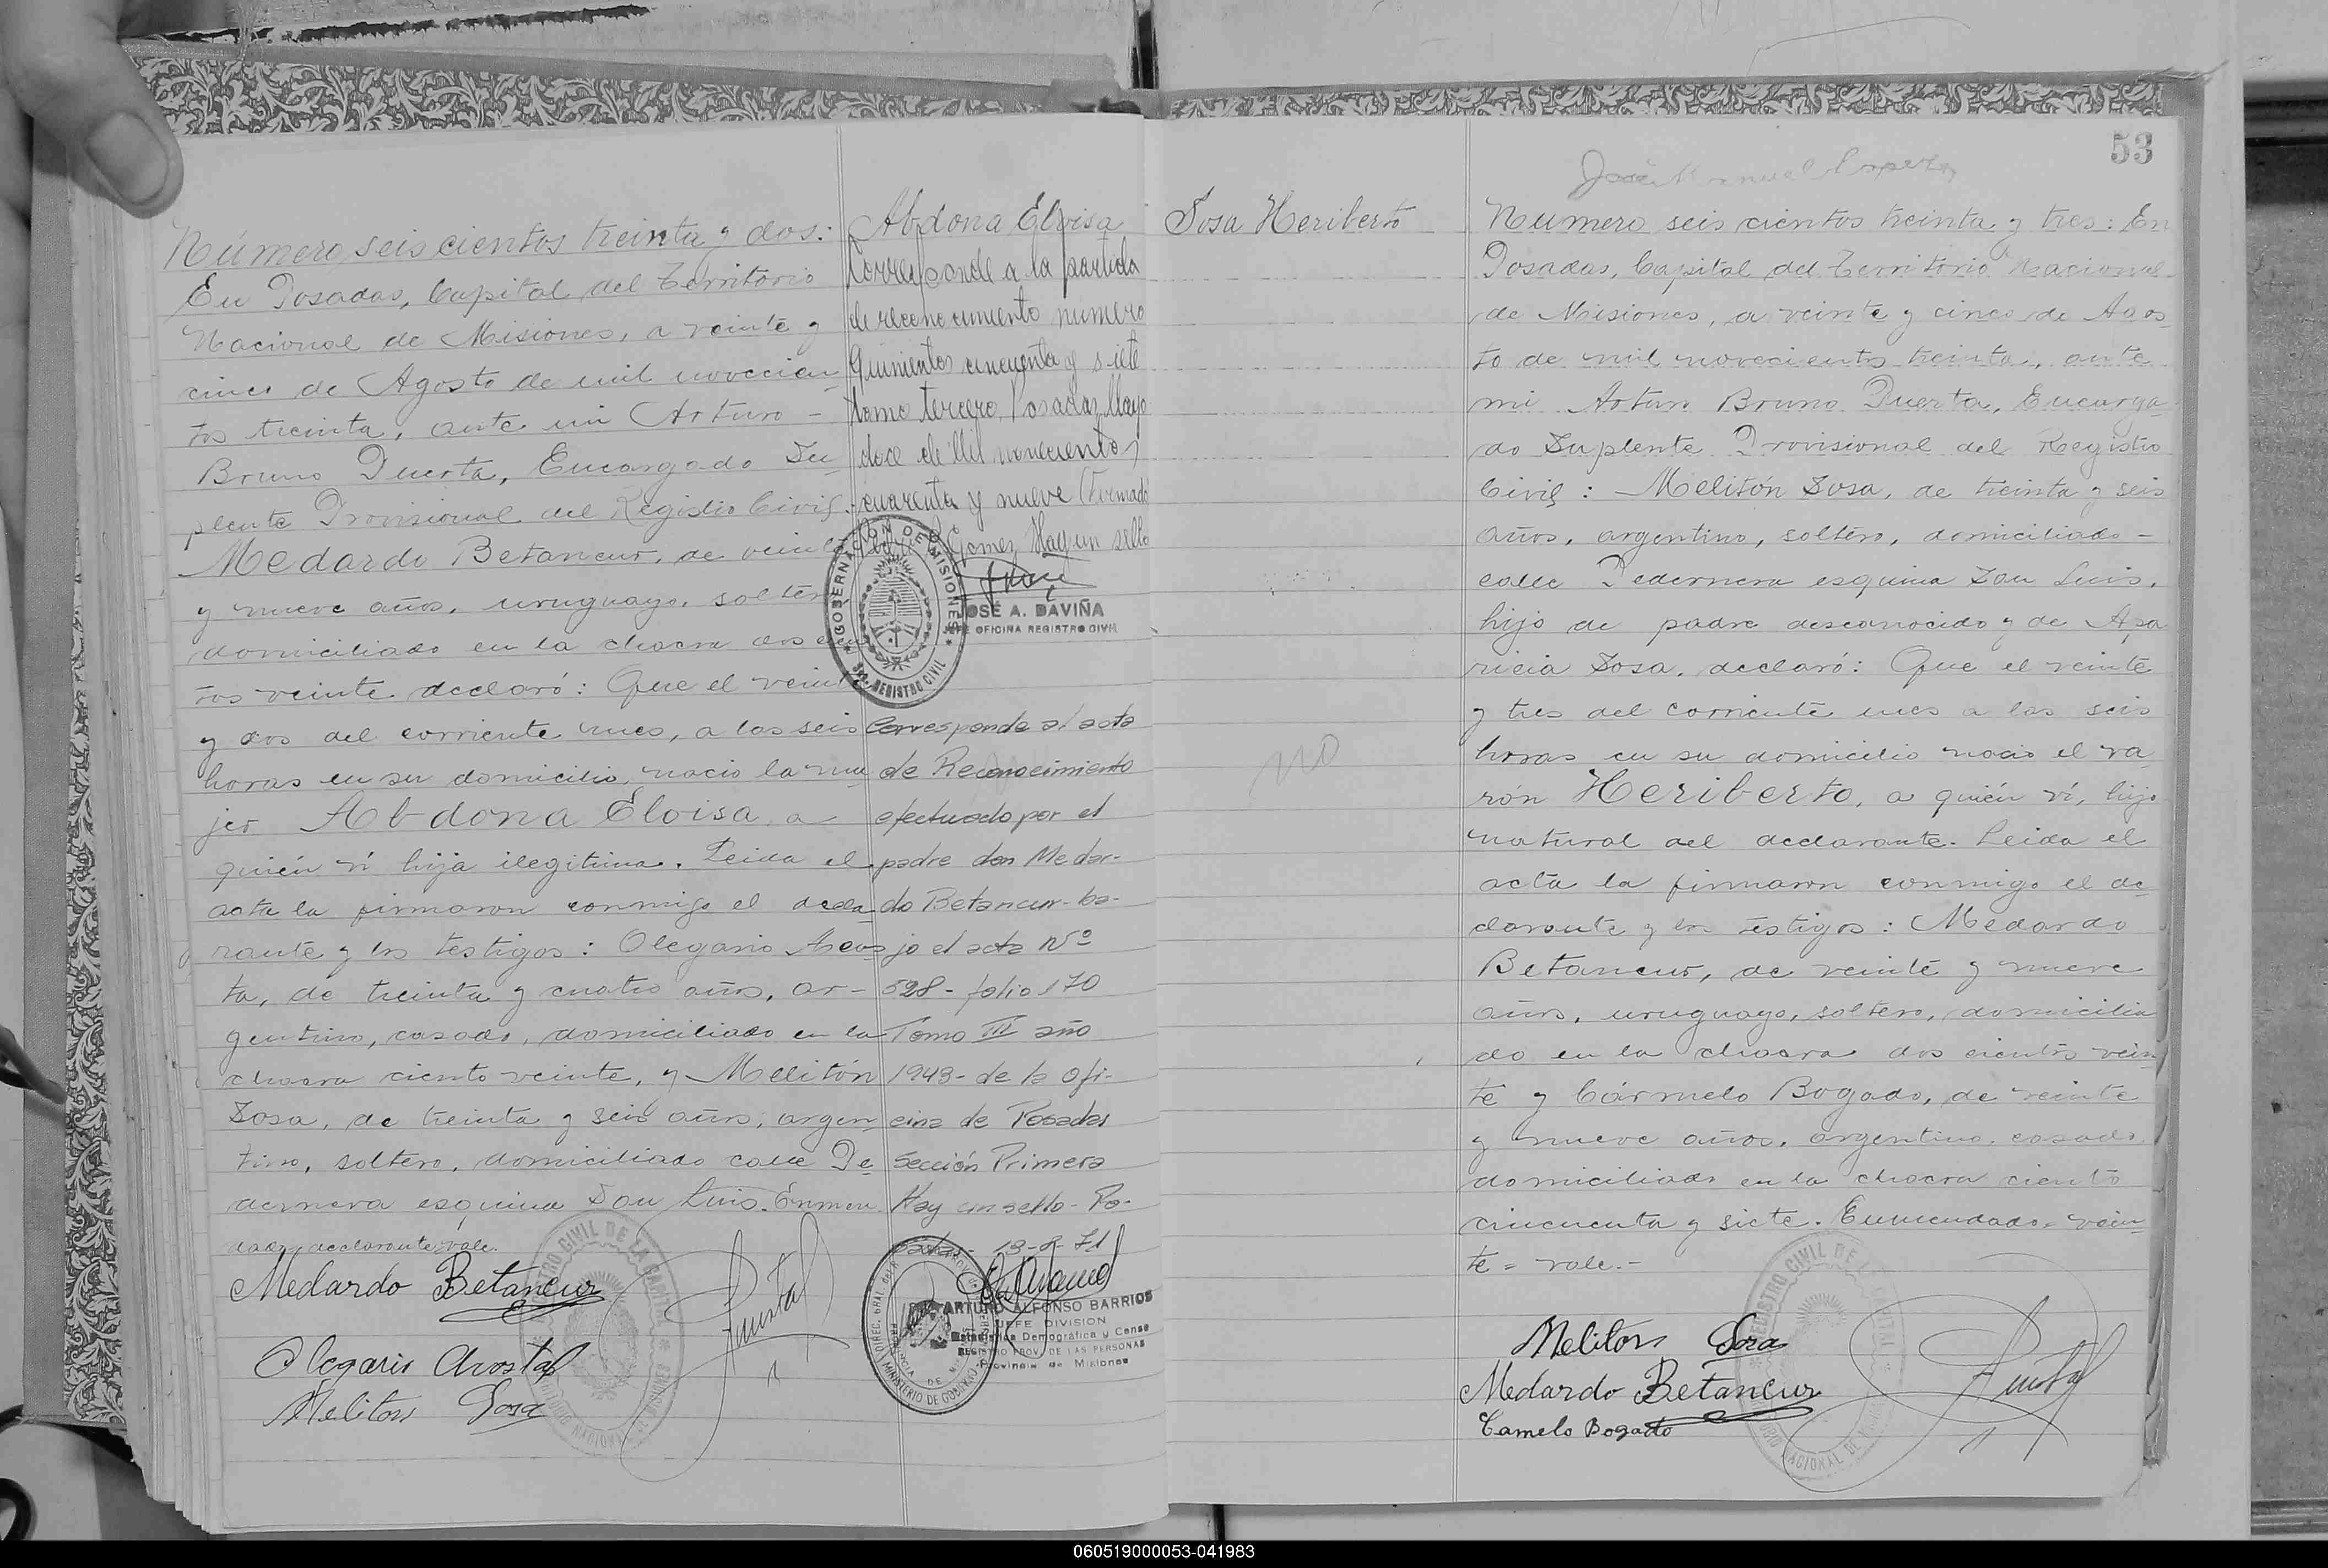 Número seis cientos treinta y dos:
En Posadas, Capital del Territorio
Nacional de Misiones, a veinte y
cinco de Agosto de mil novecien
tos treinta, ante mi Arturo -
Bruno Puerta, Encargado Su-
plente Provisional del Registro Civil.
Medardo Betancur, de veinte
y nueve años, uruguayo, soltero
domiciliado en la chacra dos cien
tos veinte declaró: Que el veinte
y dos del corriente mes, a las seis
horas en su domicilio, nacio la mu
jer Abdona Eloisa, a
quién ví hija ilegitima. Leida el
acta la firmaron conmigo el decla
rante y los testigos: Olegario Acos
ta, de treinta y cuatro años, ar-
gentino, casado, domiciliado en la
chacra ciento veinte, y Melitón
Sosa, de treinta y seis años, argen
tino, soltero, domiciliado calle Pe
dernera esquina San Luis. Enmen
dado, declarante, vale.
Medardo Betancur
Olegario Acosta
Meliton Sosa
Abdona Eloisa
Corresponde a la partida
de reconocimiento numero
Quinientos cincuenta y siete
tomo tercero, Posadas, Mayo
doce de Mil novecientos
cuarenta y nueve (Firmado
Gomez Hay un sello
GOBERNACION DE MISIONES
REGISTRO CIVIL
JOSÉ A. DAVIÑA
JEFE OFICINA REGISTRO CIVIL
Corresponde al acta
de Reconocimiento
efectuado por el
padre don Medar-
do Betancur- ba-
jo el acta Nº
528- folio 170
Tomo III año
1943- de la Ofi-
cina de Posadas
Sección Primera
Hay un sello- Po-
sadas- 13-8-71
ARTURO ALFONSO BARRIOS
JEFE DIVISION
Estadística Demográfica y Censo
REGISTRO PROV. DE LAS PERSONAS
Provincia de Misiones
MINISTERIO DE GOBIERNO
53
José Manuel
Sosa Heriberto
no
Numero seis cientos treinta y tres: En
Posadas, Capital del Territorio Nacional
de Misiones, a veinte y cinco de Agos
to de mil novecientos treinta, ante
mi Arturo Bruno Puerta, Encarga
do Suplente Provisional del Registro
Civil: Melitón Sosa, de treinta y seis
años, argentino, soltero, domiciliado -
calle Pedernera esquina San Luis,
hijo de padre desconocido y de Apa
ricia Sosa, declaró: Que el veinte
y tres del corriente mes a las seis
horas en su domicilio nació el va
rón Heriberto, a quién ví, hijo
natural del declarante. Leida el
acta la firmaron conmigo el de
clarante y los testigos: Medardo
Betancur, de veinte y nueve
años, uruguayo, soltero, domicilia
do en la chacra dos cientos vein
te y Cármelo Bogado, de veinte
y nueve años, argentino, casado,
domiciliado en la chacra ciento
cincuenta y siete. Enmendado = vein
te = vale.-
Meliton Sosa
Medardo Betancur
Camelo Bogado
060519000053-041983